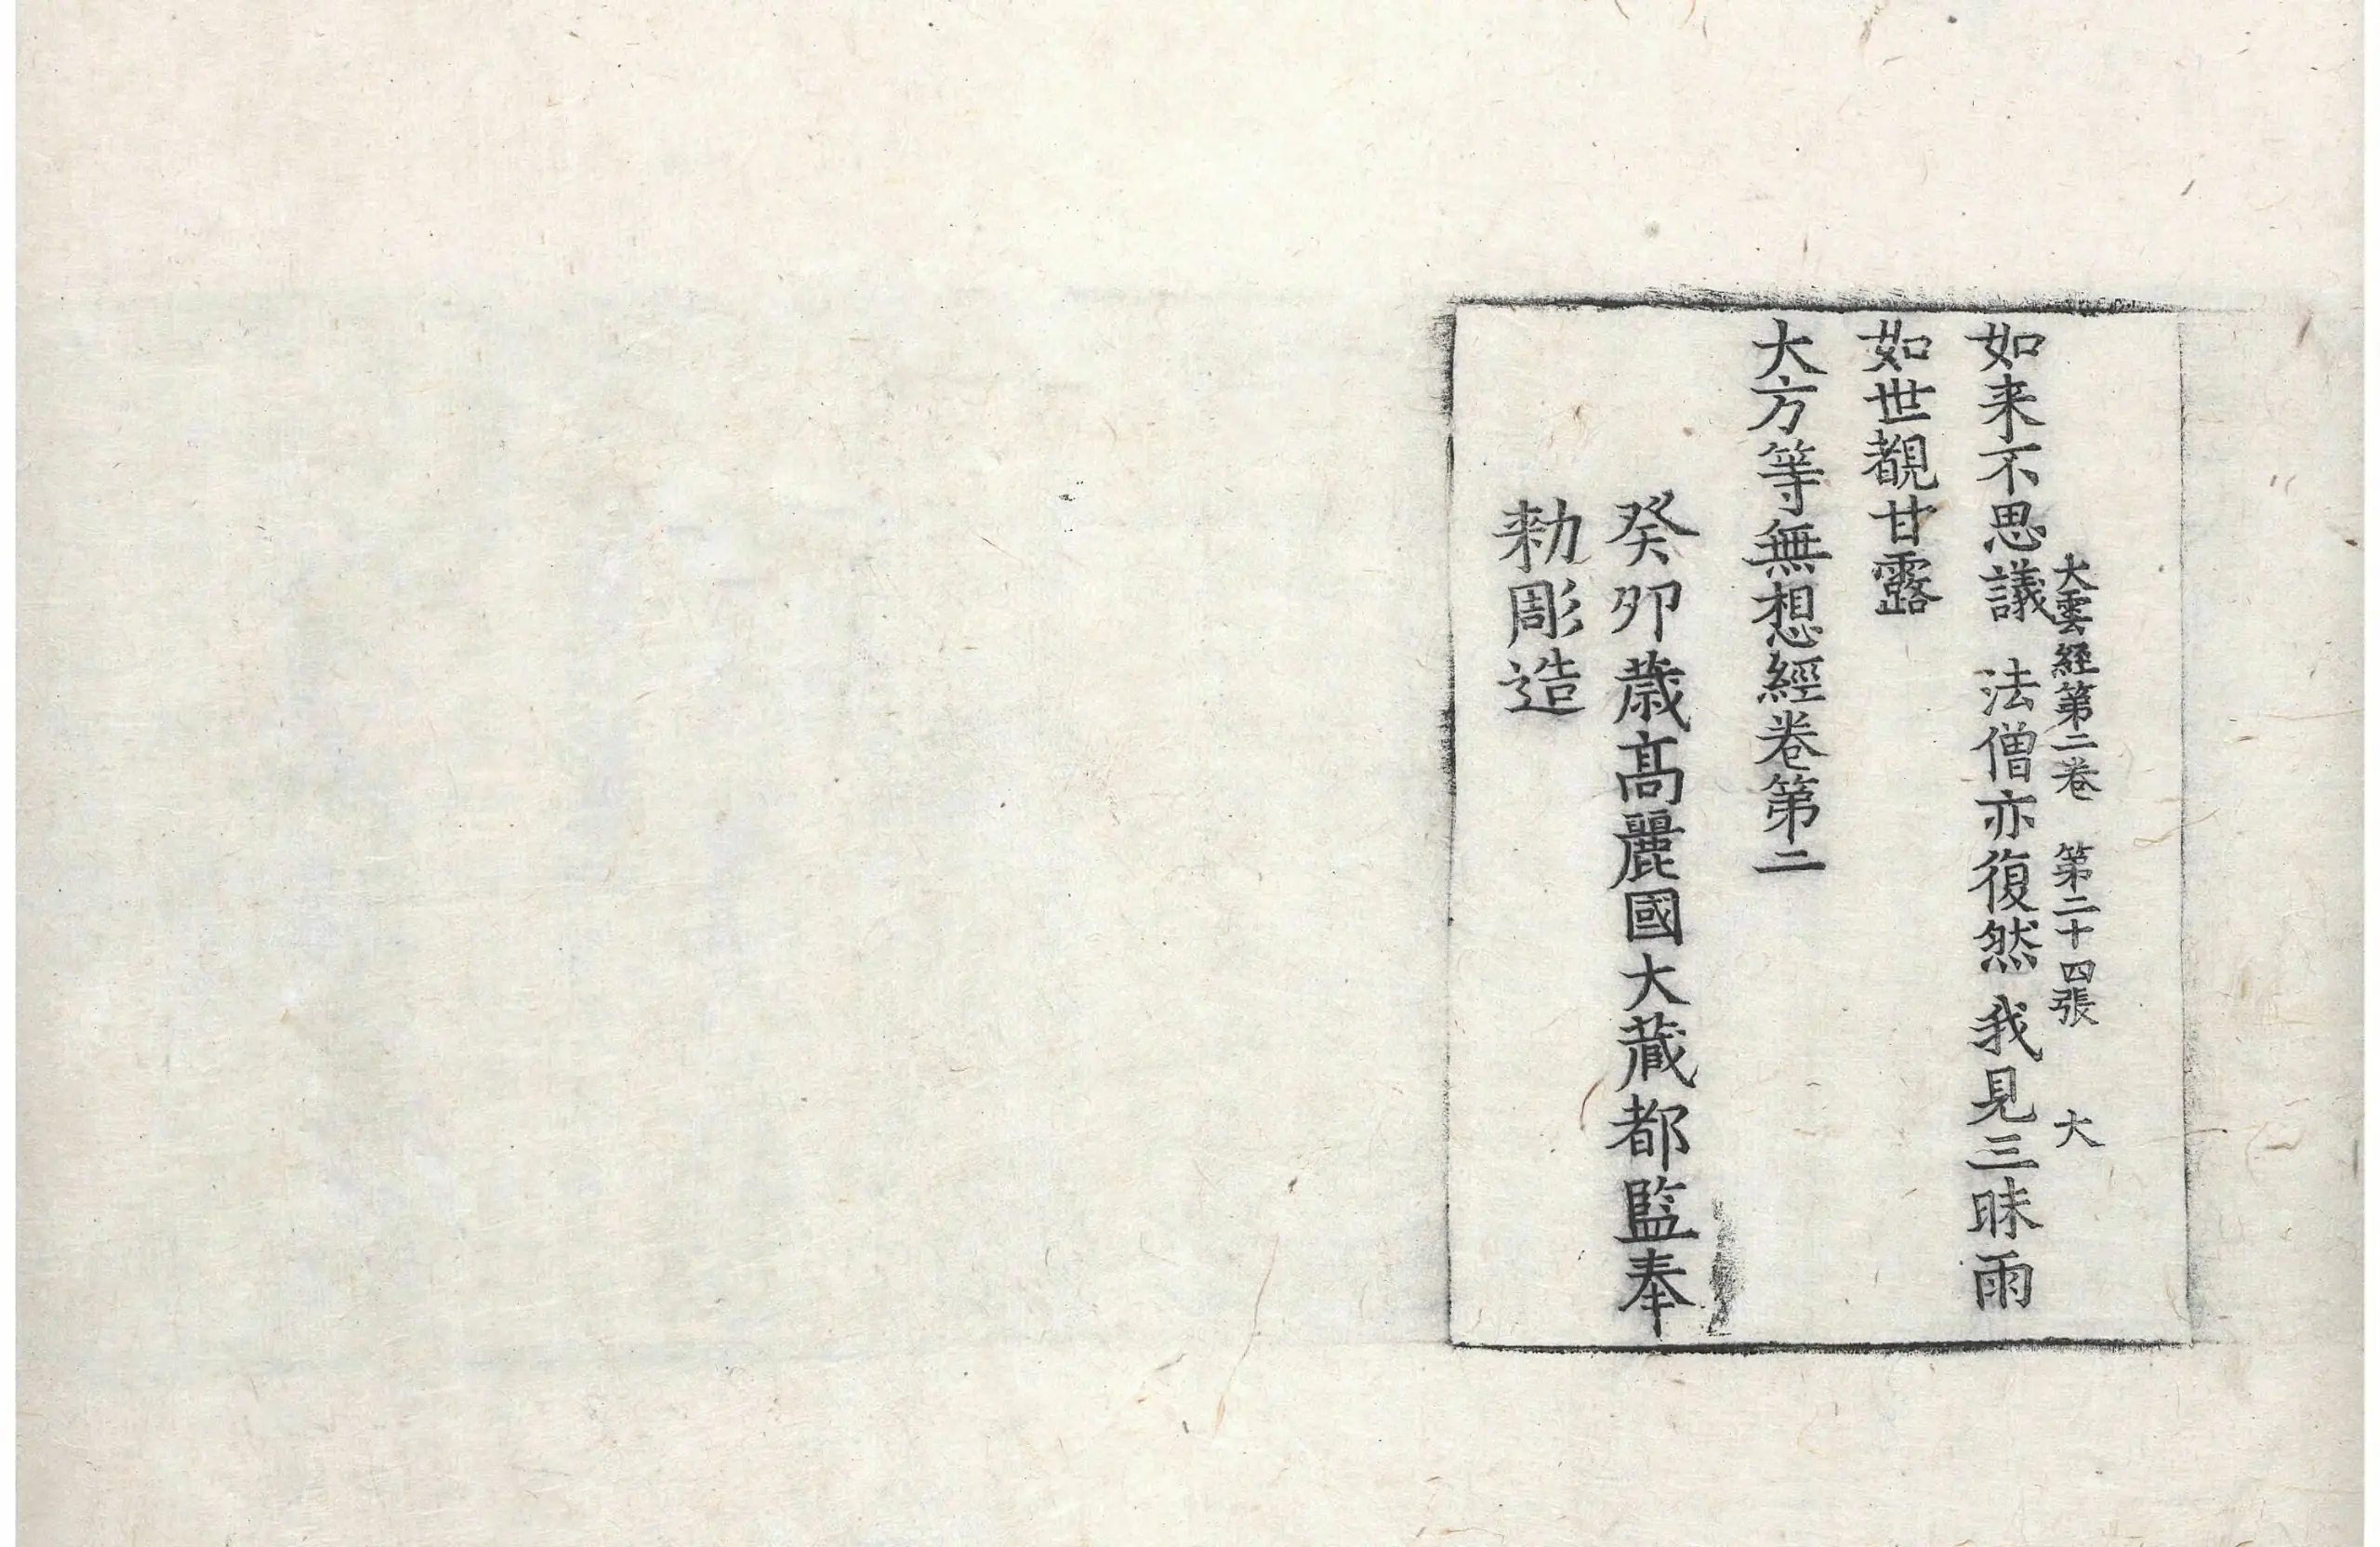 大雲經第二卷　第二十四張　大
如来不思議　法僧亦復然　我見三昧雨
如世覩甘露
大方等無想經卷第二
癸卯歲高麗國大藏都監奉
勑彫造